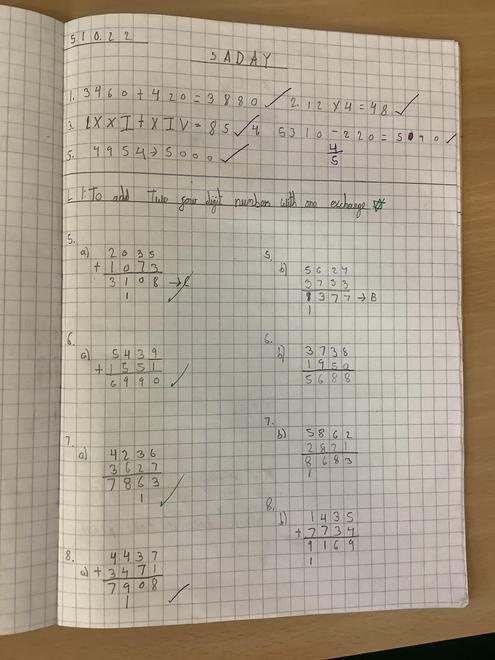 5.10.22
5 ADAY
1. 3460 + 420 = 3880 2. 12 x 4 = 48
3. LXXI + XIV = 85 4 5310 - 220 = 5090
5. 4954 → 5000 4/5
L I: To add Two four digit numbers with one exchange
5.
a) 2035
+ 1073
3108 → C
1
5.
b) 5624
3753
9377 → B
1
6.
a) 5439
+ 1551
6990
6.
b) 3738
1950
5688
7.
a) 4236
3627
7863
1
7.
b) 5862
2821
8683
1
8.
a) 4437
+ 3471
7908
1
8.
b) 1435
+ 7734
9169
1